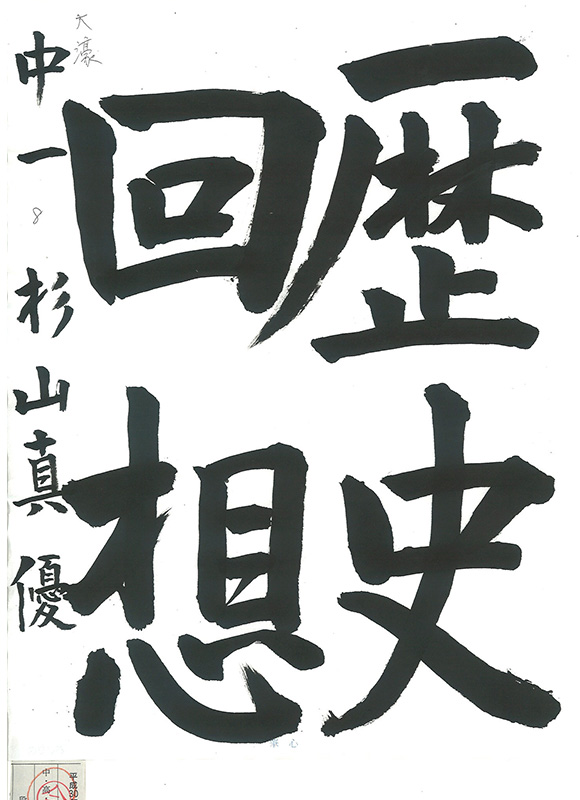 歴史
回想
中一 8 杉山真優
大濠
心
平成30
中・高・